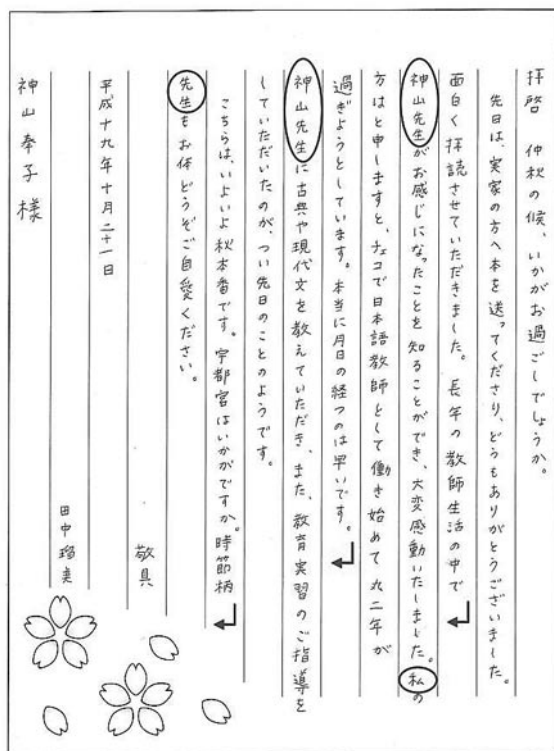 拝啓　仲秋の候、いかがお過ごしでしょうか。
先日は、実家の方へ本を送ってくださり、どうもありがとうございました。
面白く拝読させていただきました。長年の教師生活の中で
神山先生がお感じになったことを知ることができ、大変感動いたしました。私の
方はと申しますと、チェコで日本語教師として働き始めて丸二年が
過ぎようとしています。本当に月日の経つのは早いです。
神山先生に古典や現代文を教えていただき、また、教育実習のご指導を
していただいたのが、つい先日のことのようです。
こちらは、いよいよ秋本番です。宇都宮はいかがですか。時節柄
先生もお体どうぞご自愛ください。
敬具
平成十九年十月二十一日
田中瑠美
神山奉子様